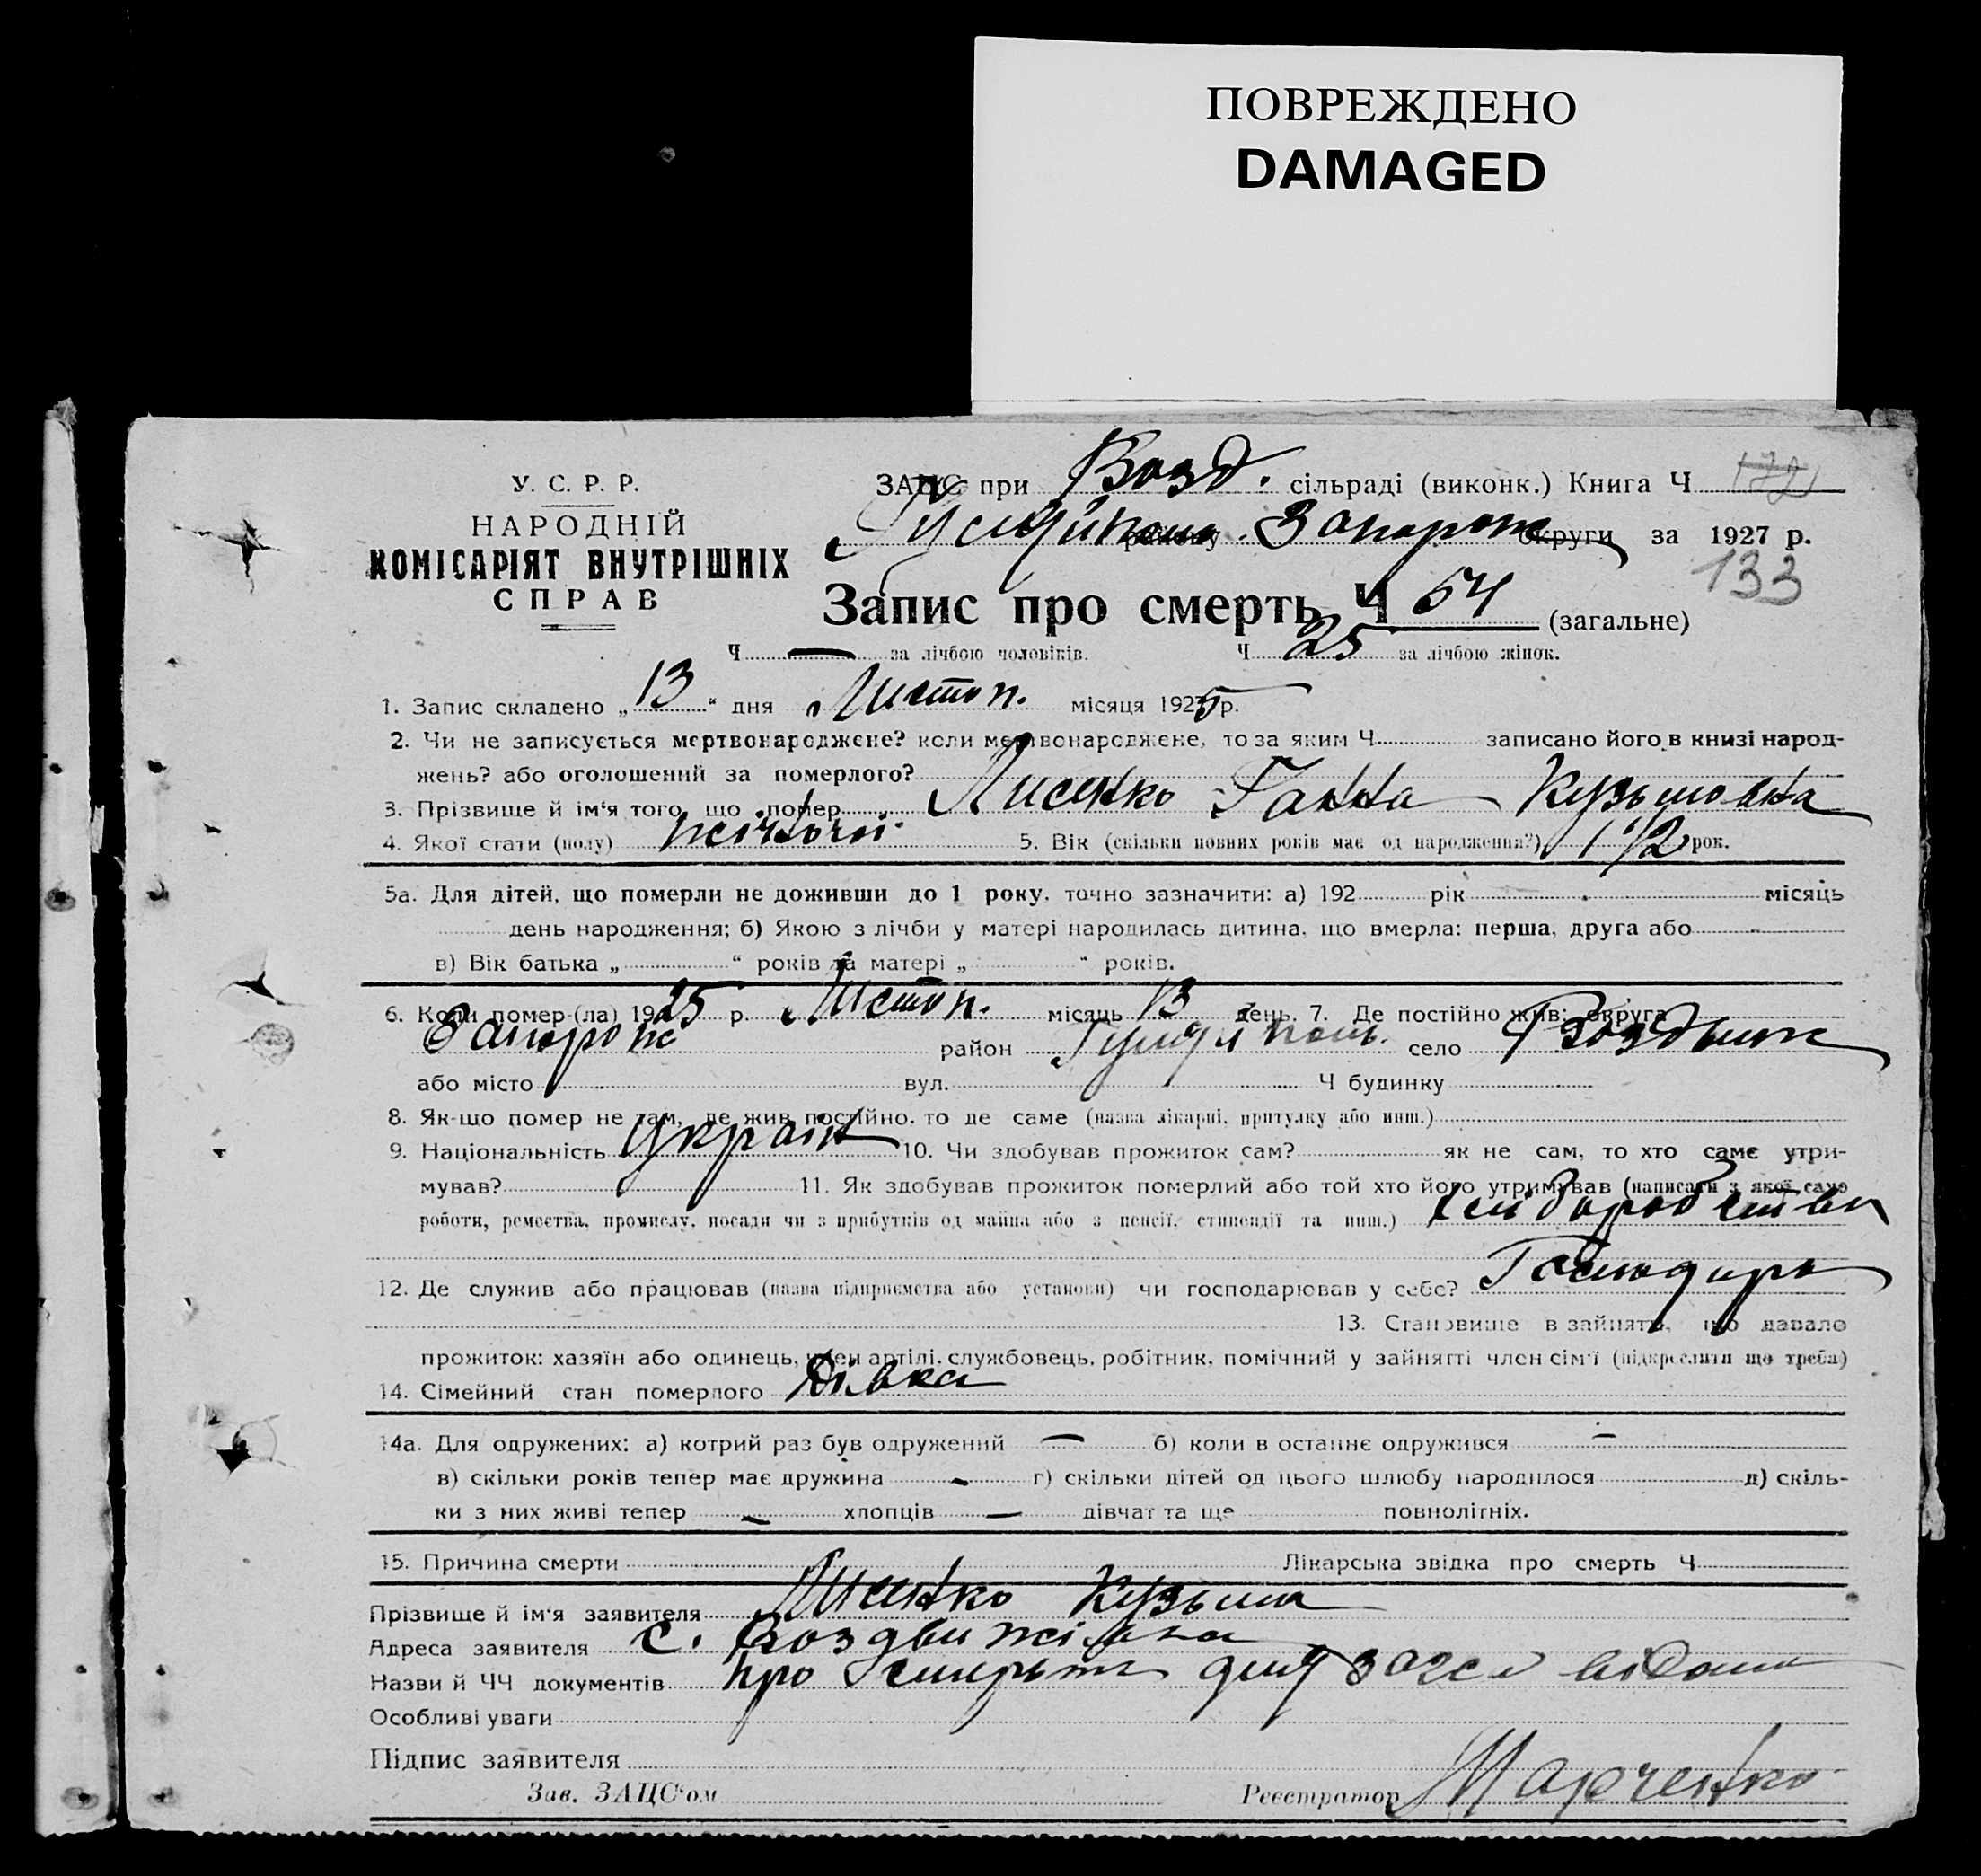 ПОВРЕЖДЕНО
DAMAGED
У. С. Р. Р.
НАРОДНІЙ
КОМІСАРІЯТ ВНУТРІШНІХ
СПРАВ
ЗАЦС при Возд. сільраді (виконк.) Книга Ч
району Запорож округи за 1927 р.
133
Запис про смерть Ч 54 (загальне)
Ч — за лічбою чоловіків. Ч 25 за лічбою жінок.
1. Запис складено „ 13 “ дня Листоп. місяця 1925 р.
2. Чи не записується мертвонароджене? коли мертвонароджене, то за яким Ч записано його в книзі народ-
жень? або оголошений за померлого?
3. Прізвище й ім‘я того, що помер Лисенко Ганна Кузьмовна
4. Якої стати (полу) жіночої 5. Вік (скільки повних років має од народження?) 1 1/2 рок.
5а. Для дітей, що померли не доживши до 1 року, точно зазначити: а) 192 рік місяць
день народження; б) Якою з лічби у матері народилась дитина, що вмерла: перша, друга або
в) Вік батька „ “ років та матері „ “ років.
6. Коли помер (ла) 1925 р. Листоп. місяць 13 день. 7. Де постійно жив: округа
Запорож район Гуляйполь. село Воздвиж
або місто вул. Ч будинку
8. Як-що помер не там, де жив постійно, то де саме (назва лікарні, притулку або инш.)
9. Національність україн 10. Чи здобував прожиток сам? як не сам, то хто саме утри-
мував? 11. Як здобував прожиток померлий або той хто його утримував (написати з якої само
роботи, ремества, промислу, посади чи з прибутків од майна або з пенсії, стипендії та инш.)
12. Де служив або працював (назва підприємства або установи) чи господарював у себе? Господарь
13. Становище в зайнятті, що давало
прожиток: хазяїн або одинець, член артілі, службовець, робітник, помічний у зайнятті член сім‘ї (підкреслити що треба)
14. Сімейний стан померлого Дівка
14а. Для одружених: а) котрий раз був одружений — б) коли в останнє одружився —
в) скільки років тепер має дружина — г) скільки дітей од цього шлюбу народилося д) скіль-
ки з них живі тепер — хлопців — дівчат та ще повнолітніх.
15. Причина смерти Лікарська звідка про смерть Ч
Прізвище й ім‘я заявителя Лисенко Кузьма
Адреса заявителя с. Воздвижівка
Назви й ЧЧ документів про смерть для
Особливі уваги
Підпис заявителя
Зав. ЗАЦС‘ом Реєстратор Марченко